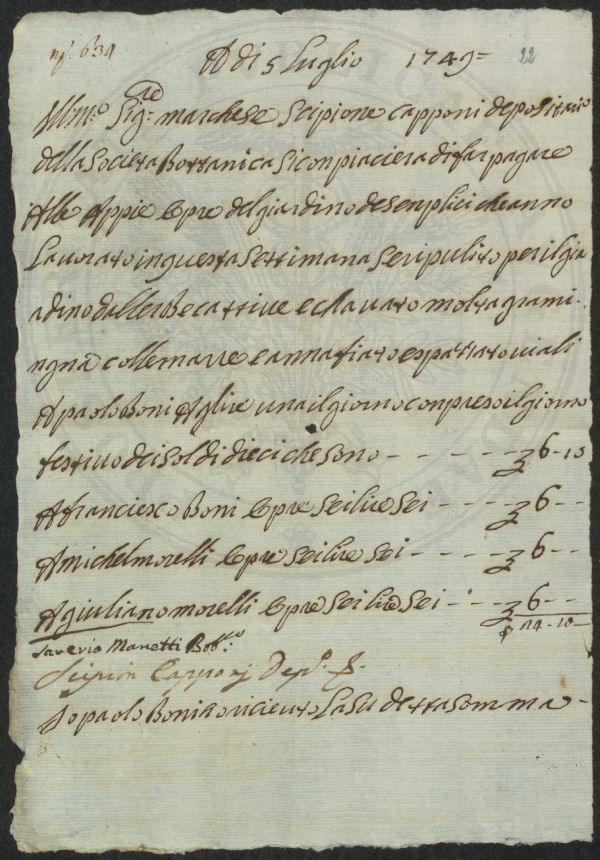 nº. 634
A di 5 Luglio 1749= 22
Illmo. Sigre. marchese Scipione Capponi depositario
della Societa Bottanica Siconpiacera di far pagare
Alle Appie Opre del giardino de Senplici che anno
Lavorato in questa Settimana Seripulito per il gia
adino dalle erbe cattive e chavato molta grami
ngna colle marre e annafiato espattato viali
A paolo Boni Aglire una il giorno conpreso il giorno
festivo dei Soldi dieci che sono - - - - - £ 6-10
A francesco Boni Opre sei lire Sei - - - - £ 6 - -
A michel morelli Opre sei lire Sei - - - - £ 6 - -
A giuliano morelli Opre sei lire Sei - - - £ 6 - -
£ 24-10-
Saverio Manetti Bot.co
Scipion Capponj Depo.
Io paolo Boni o riceuto La Su detta Somma -